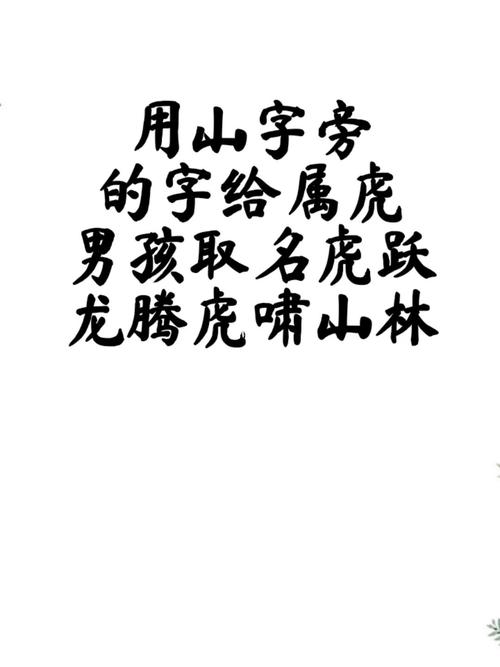 用山字旁
的字给属虎
男孩取名虎跃
龙腾虎啸山林